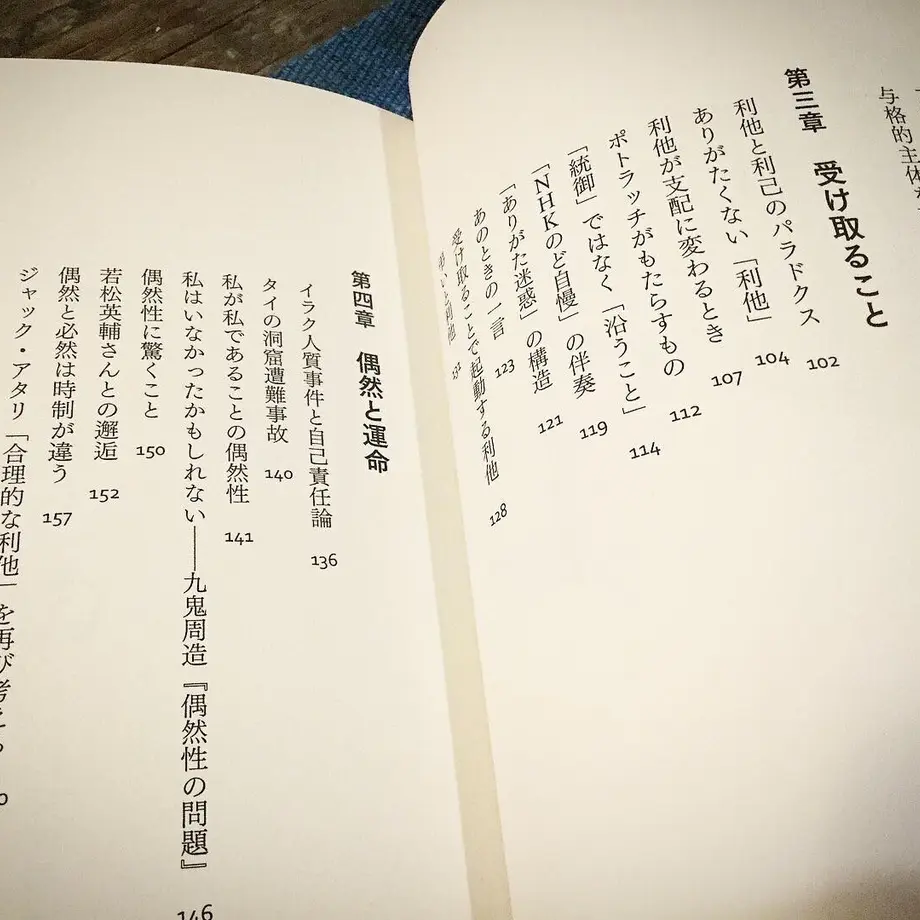 与格的主体
第三章 受け取ること
利他と利己のパラドクス 102
ありがたくない「利他」 104
利他が支配に変わるとき 107
ポトラッチがもたらすもの 112
「統御」ではなく「沿うこと」 114
「NHKのど自慢」の伴奏 119
「ありがた迷惑」の構造 121
あのときの一言 123
受け取ることで起動する利他 128
と利他
第四章 偶然と運命
イラク人質事件と自己責任論 136
タイの洞窟遭難事故 140
私が私であることの偶然性 141
私はいなかったかもしれない──九鬼周造『偶然性の問題』 146
偶然性に驚くこと 150
若松英輔さんとの邂逅 152
偶然と必然は時制が違う 157
ジャック・アタリ「合理的な利他」を再び考える